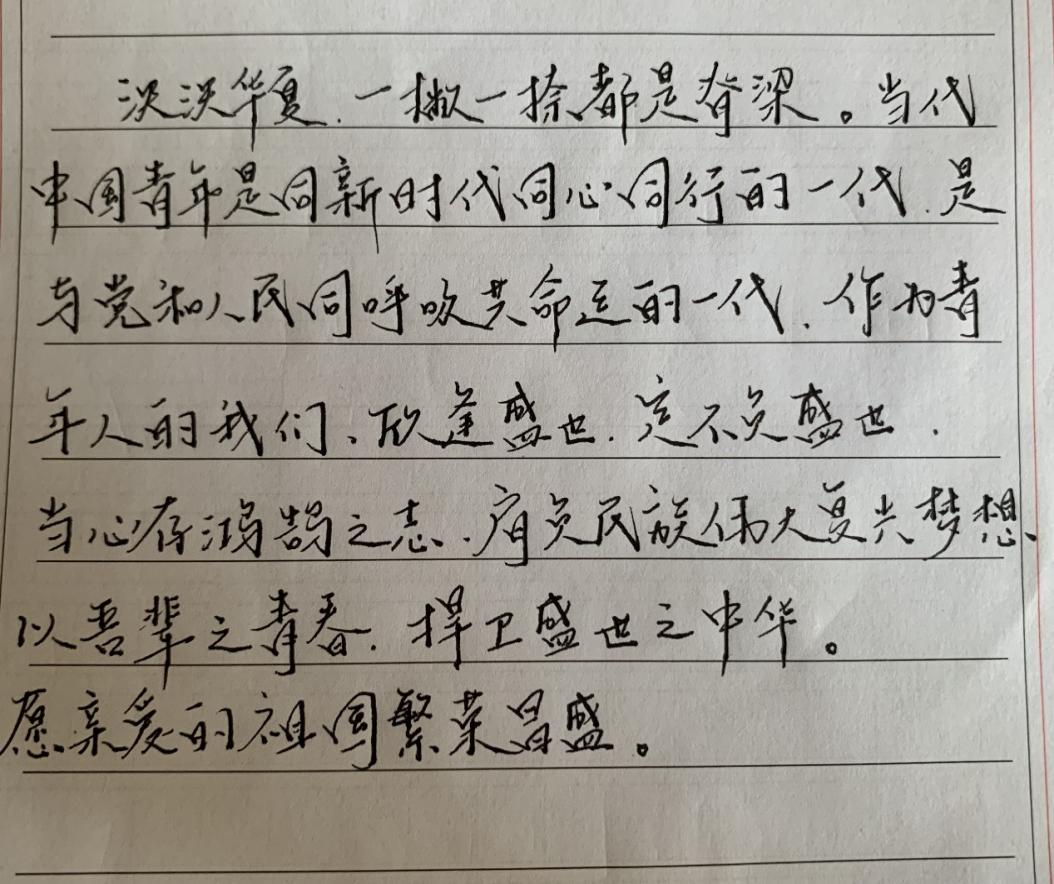 泱泱华夏,一撇一捺都是脊梁。当代
中国青年是同新时代同心同行的一代,是
与党和人民同呼吸共命运的一代,作为青
年人的我们、欣逢盛世,定不负盛世,
当心存鸿鹄之志,肩负民族伟大复兴梦想、
以吾辈之青春,捍卫盛世之中华。
愿亲爱的祖国繁荣昌盛。